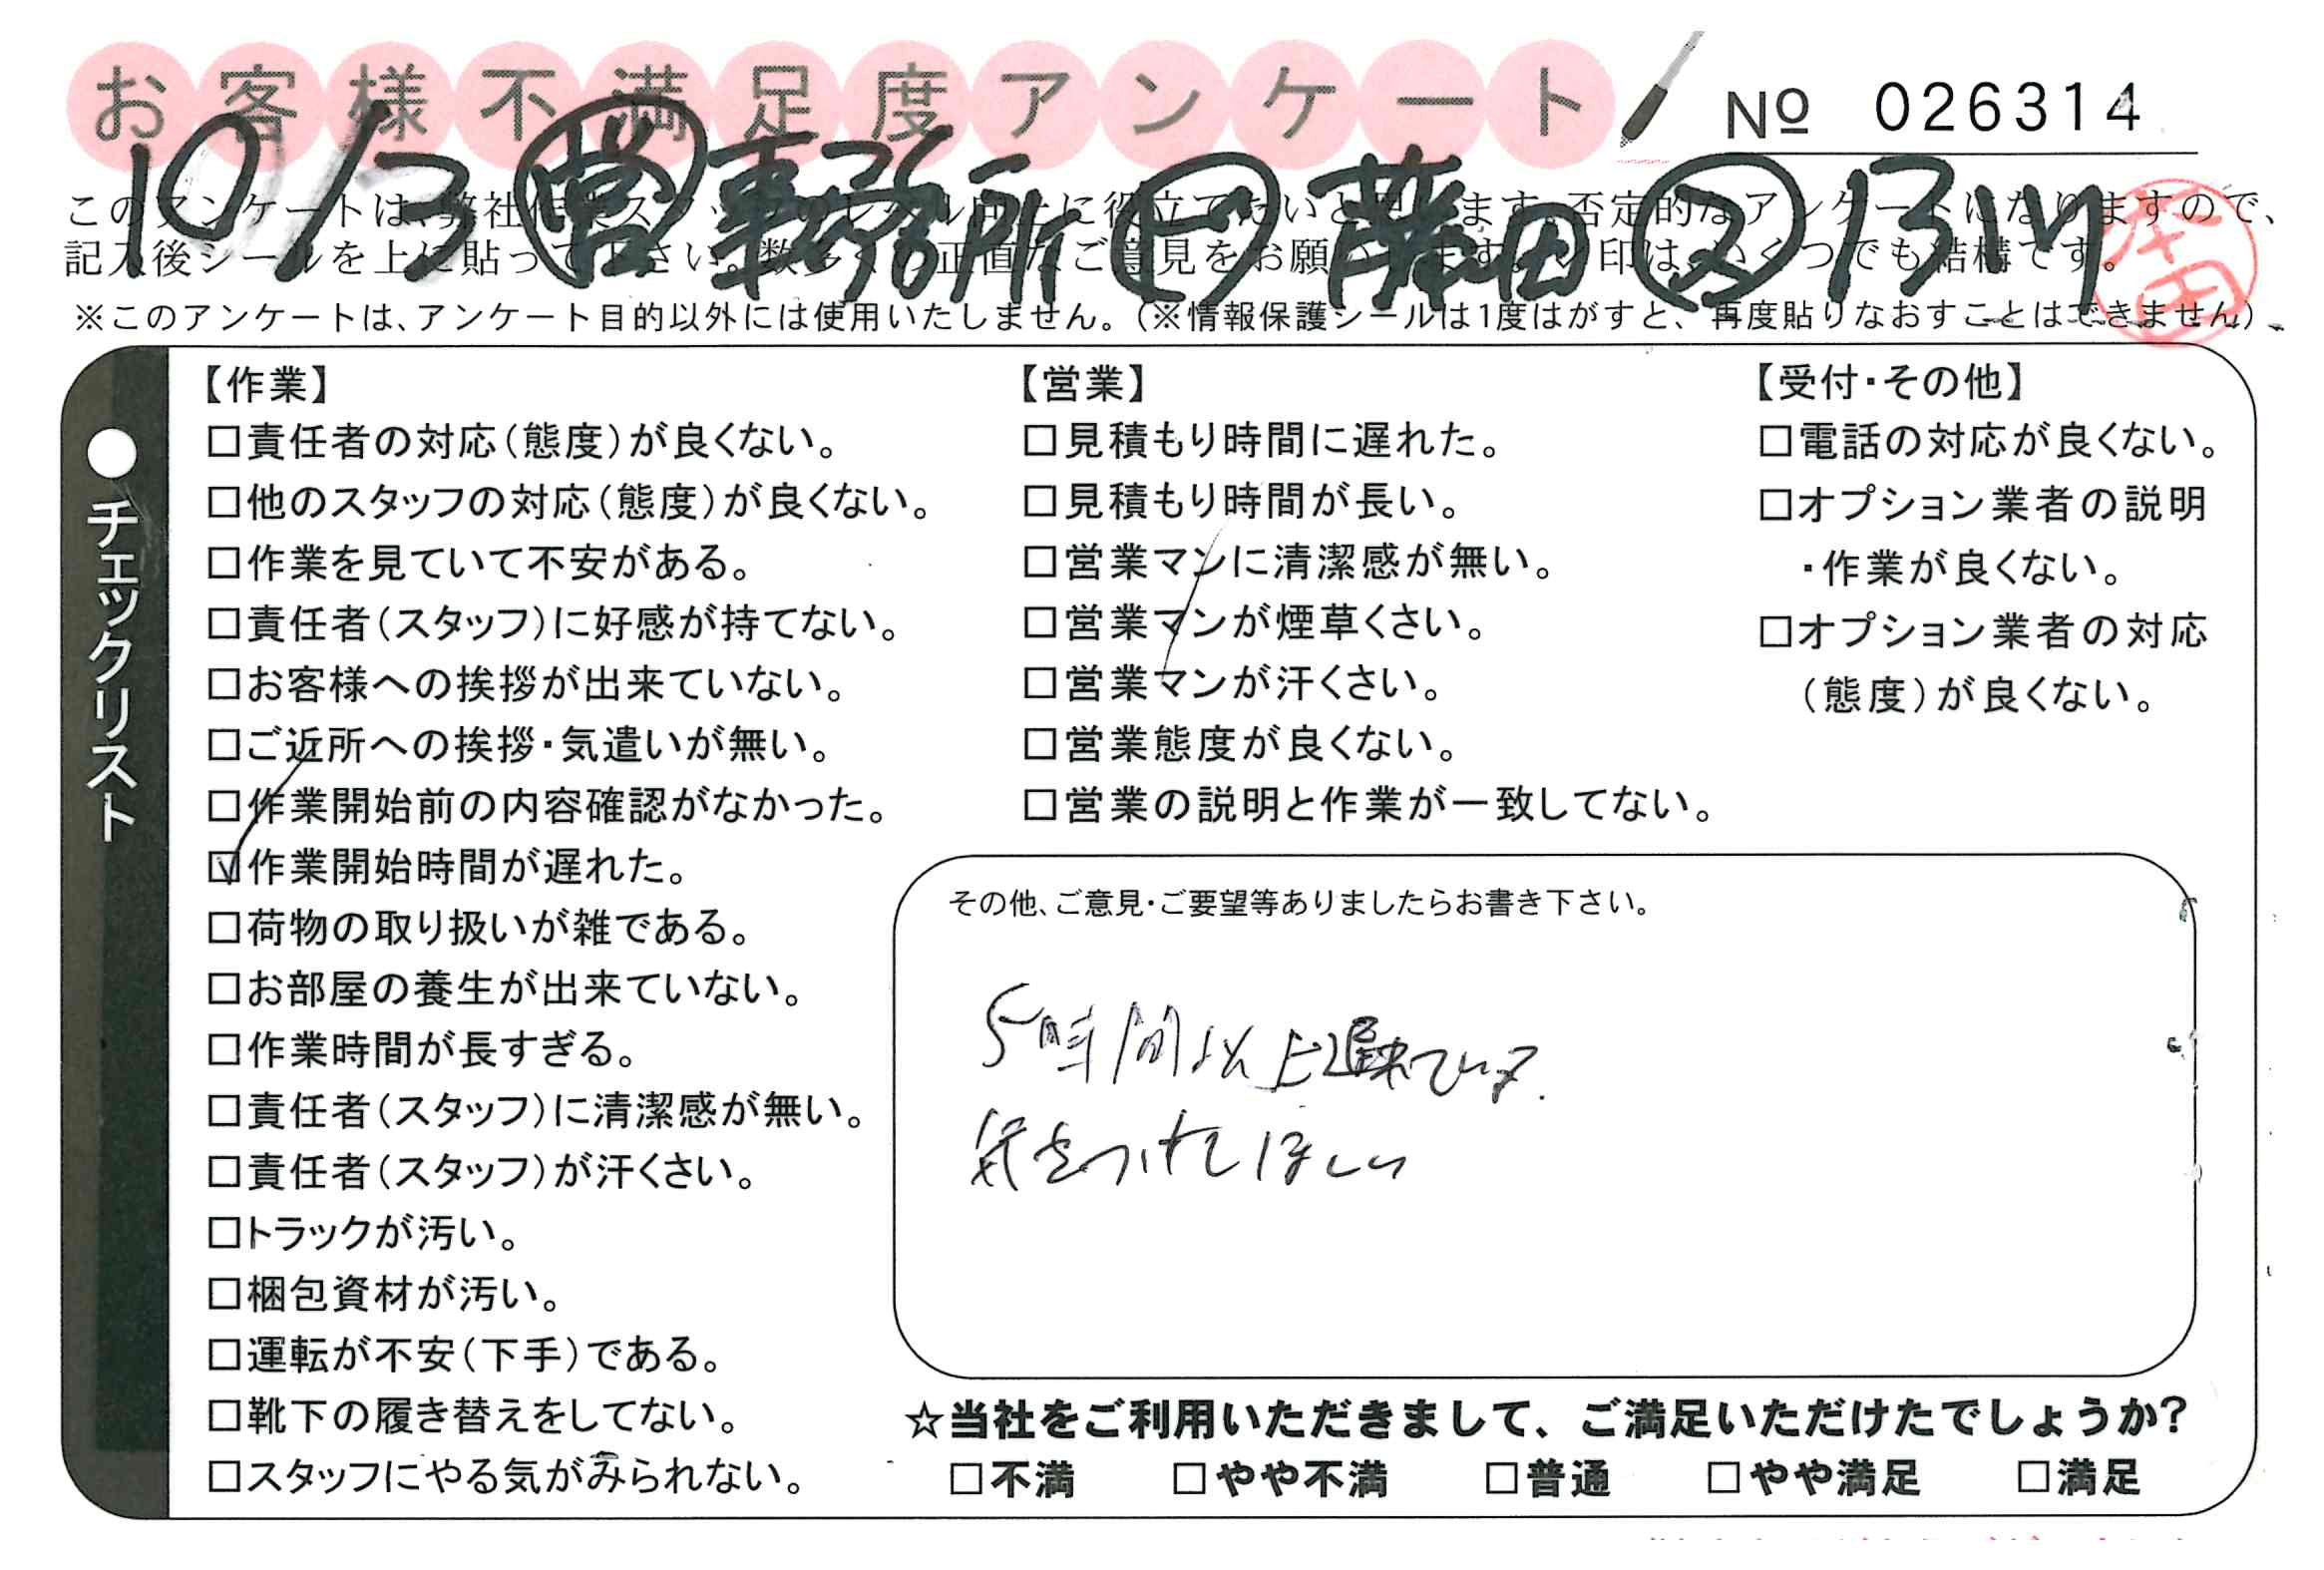 お客様不満足度アンケート
№ 026314
10/3 営 事務所 ト 藤田 ス 石川
このアンケートは、弊社作業スタッフのレベル向上に役立てたいと思います。否定的なアンケートになりますので、
記入後シールを上に貼って下さい。数多くの正直なご意見をお願いします。✓印は、いくつでも結構です。
※このアンケートは、アンケート目的以外には使用いたしません。(※情報保護シールは1度はがすと、再度貼りなおすことはできません)
●チェックリスト
【作業】
□責任者の対応(態度)が良くない。
□他のスタッフの対応(態度)が良くない。
□作業を見ていて不安がある。
□責任者(スタッフ)に好感が持てない。
□お客様への挨拶が出来ていない。
□ご近所への挨拶・気遣いが無い。
□作業開始前の内容確認がなかった。
☑作業開始時間が遅れた。
□荷物の取り扱いが雑である。
□お部屋の養生が出来ていない。
□作業時間が長すぎる。
□責任者(スタッフ)に清潔感が無い。
□責任者(スタッフ)が汗くさい。
□トラックが汚い。
□梱包資材が汚い。
□運転が不安(下手)である。
□靴下の履き替えをしてない。
□スタッフにやる気がみられない。
【営業】
□見積もり時間に遅れた。
□見積もり時間が長い。
□営業マンに清潔感が無い。
□営業マンが煙草くさい。
□営業マンが汗くさい。
□営業態度が良くない。
□営業の説明と作業が一致してない。
【受付・その他】
□電話の対応が良くない。
□オプション業者の説明
・作業が良くない。
□オプション業者の対応
(態度)が良くない。
その他、ご意見・ご要望等ありましたらお書き下さい。
5時間以上遅れている.
気をつけてほしい
☆当社をご利用いただきまして、ご満足いただけたでしょうか?
□不満 □やや不満 □普通 □やや満足 □満足